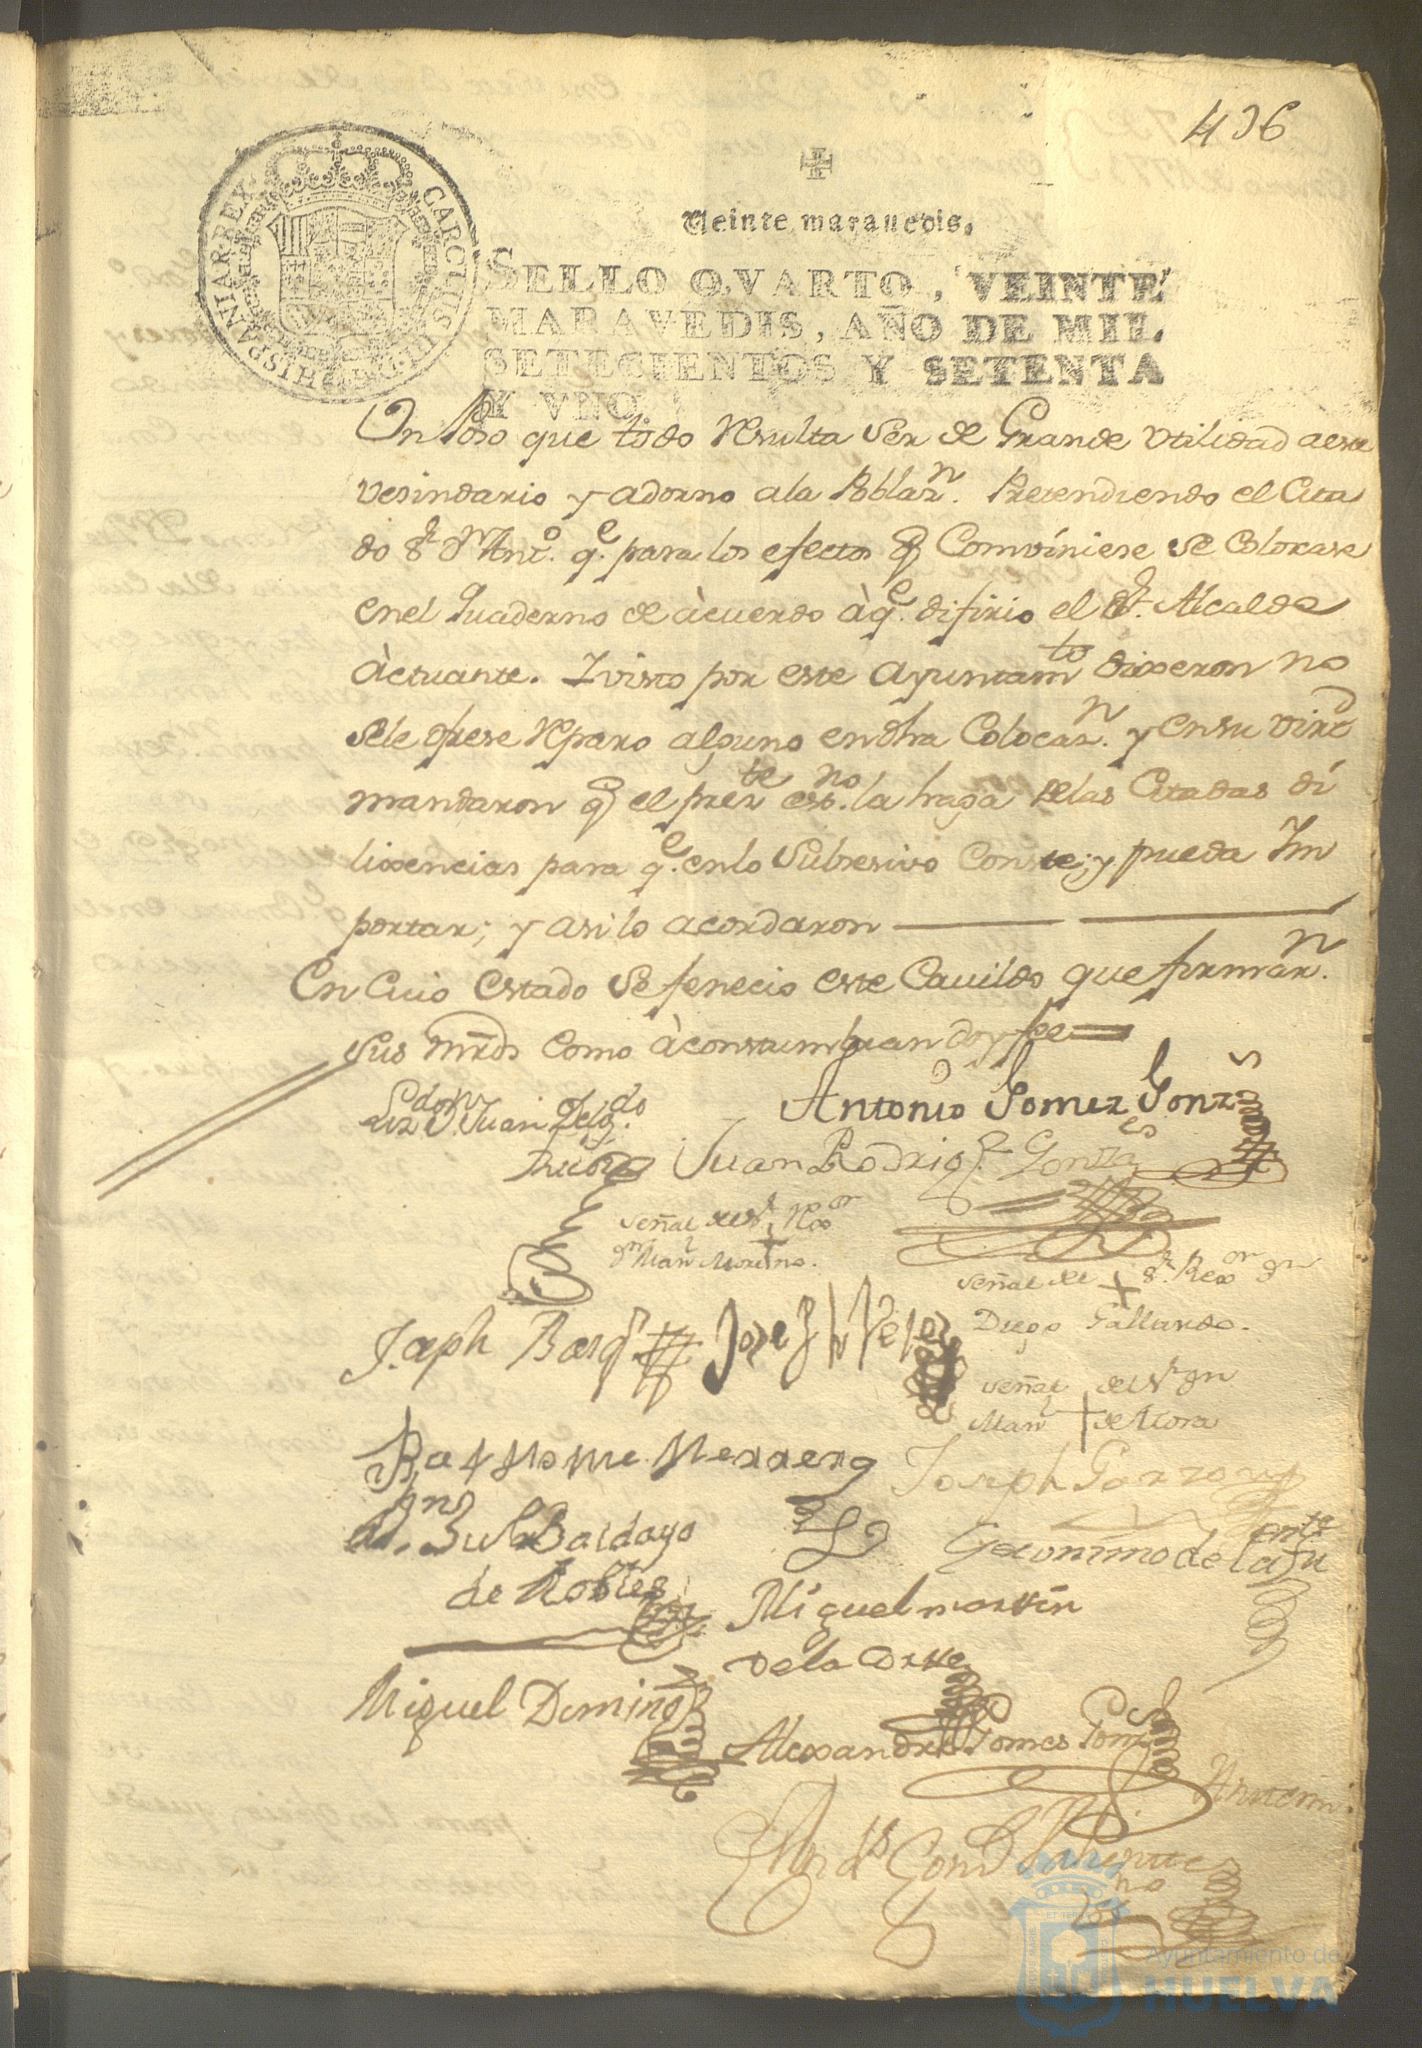 436
Veinte marauedis,
CAROLUS III D G HISPANIAR REX
SELLO QVARTO, VEINTE
MARAVEDIS, AÑO DE MIL
SETECIENTOS Y SETENTA
Y VNO.
que todo resulta ser de Grande vtilidad a este
vesindario y adorno a la Poblazn. Pretendiendo el Cita
do Sr Dn Anto. qe. para los efectos q Comviniese se Colocase
en el Quaderno de àcuerdo à qe. difirio el Sr. Alcalde
àctuante. I visto por este Ayuntamto dixeron no
sele ofrese reparo alguno en dha Colocazn. y en su virtd
mandaron q el preste esno. la haga de las Citadas di
lixencias para qe. en lo Subsesivo Conste; y pueda Im
portar; y asi lo acordaron
En Cuio estado se fenecio este Cavildo que firmarn.
sus mrds como àcostumbran doy fee
Lizdo Dn. Juan Delgdo.
Antonio Gomez Gonzs
Juan Rodrigz Gonzs
Señal del Sr Rexor
Dn Manl Moreno.
Señal del Sr. Rexor Dn
Diego Gallardo.
Joseph Barqo
Jose Velez
Señal del Sr Dn
Manl de Mora
Bartolome Herrero
Joseph Garzon
Dn. Baldayo
de Robles
Geronimo de la Fuente
Miguel martin
de la Cruz
Miguel Domingz
Alexandro Gomes Gonz
Ante mi.
Ayuntamiento de
HUELVA